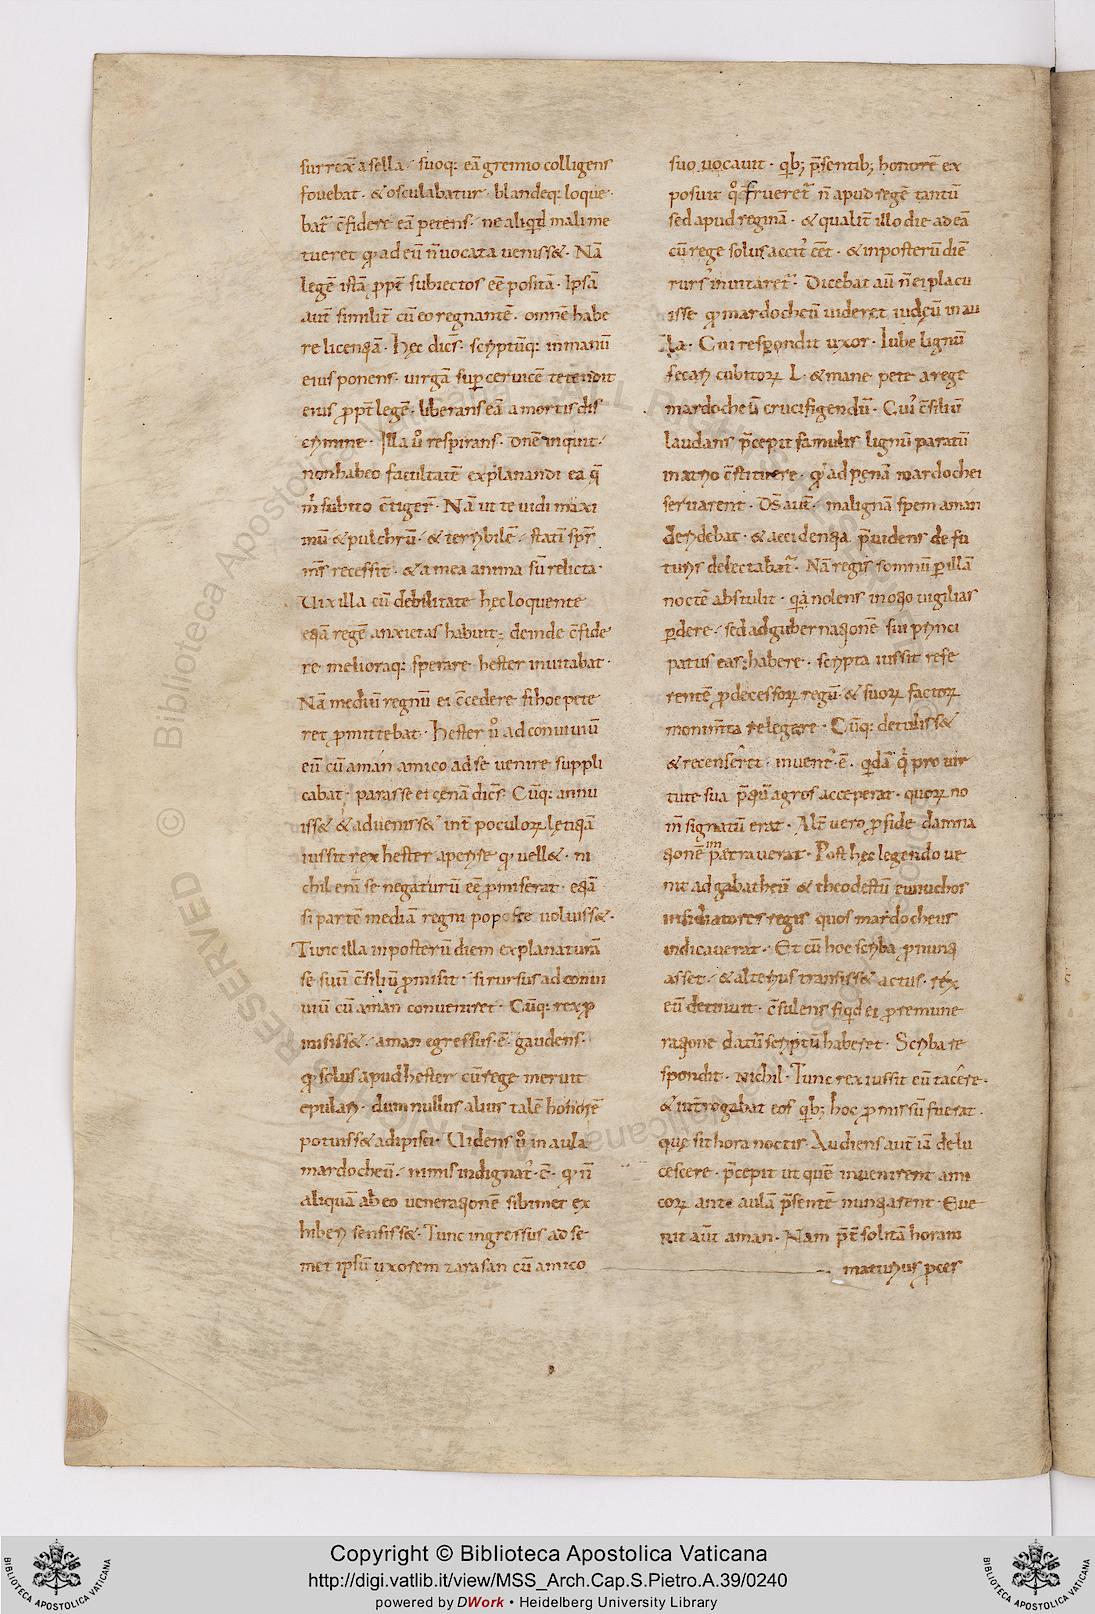 surrex̄ a sella. suoq: eā gremio colligens
fovebat · & osculabatur · blandeq: loque
bat᷑ c̄fidere eā petens · ne aliqd mali me
tueret qᵈ ad eū n̄ uocata uenisset · Nā
legē istā ꝓpt̄ subiectos eē positā · Ipsā
aut̄ similit̄ cū eo regnantē · omnē habe
re licentiā · Hęc dicēs · sceptrūq: in manū
eius ponens · virgā suꝑ cervicē tetendit
eius ꝓpt̄ legē · liberans eā a mortis dis
crimine · Illa ů respirans · Dnē inquit ·
non habeo facultatē explanandi ea q̄
m̊ subito c̄tiger̄ · Nā ut te uidi maxi
mū & pulchrū · & terribilē · statī spr̄
m̄s recessit · & a mea anima sū relicta ·
Uix illa cū debilitate hec loquente
etiā regē anxietas habuit · deinde c̄fide
re melioraq: sperare hester inuitabat ·
Nā mediū regnū ei c̄cedere si hoc pete
ret ꝓmittebat · Hester ů ad conuiuiū
eū cū aman amico ad se uenire suppli
cabat · parasse ei cenā dicēs · Cūq: annu
isset & aduenisset int̄ poculoꝝ lętitiā
iussit rex hester aperire qᵈ uellet · ni
chil enī se negaturū eē ꝓmiserat · etiā
si partē mediā regni poposce uoluisset ·
Tunc illa in posterū diem explanaturā
se suū c̄siliū ꝓmisit · si rursus ad conui
uiū cū aman conueniret · Cūq: rex ꝓ
misisset · aman egressus · ē · gaudens ·
qᵈ solus apud hester cū rege meruit
epulari · dum nullus alius talē honorē
potuisset adipisci · Uidens ů in aula
mardocheū · nimis indignat᷑ · ē · qᵈ n̄
aliquā ab eo uenerationē sibimet ex
hiberi sensisset · Tunc ingressus ad se
met ipsū uxorem zarasan cū amico
suo uocauit · qb; p̄sentib; honorē ex
posuit q̊ frueret᷑ n̄ apud regē tantū
sed apud reginā · & qualit̄ illo die ad eā
cū rege solus accit᷑ eēt · & in posterū diē
rurs᷑ inuitaret᷑ · Dicebat aū n̄ ei placu
isse qᵈ mardocheū uideret iudęū in au
la · Cui respondit uxor · Iube lignū
secari cubitoꝝ L · & mane pete a rege
mardocheū crucifigendū · Cui᷑ c̄siliū
laudans p̄cepit famulis lignū paratū
in atrio c̄stituere · qᵈ ad penā mardochei
seruarent · Ds̄ aut̄ · malignā spem aman
deridebat · & accidentia p̄uidens de fu
turis delectabat᷑ · Nā regis somnū ꝑ illā
noctē abstulit · qā nolens in otio uigilias
ꝑdere · sed ad gubernationē sui princi
patus eas habere · scripta iussit refe
rentē ꝓdecessoꝝ regū · & suoꝝ factoꝝ
monim̄ta relegere · Cūq: detulisset
& recenserēt · inuent᷑ · ē · qdā q̇ pro uir
tute sua p̄diū agros acceperat · quoꝝ no
m̄ signatū erat · Alt̄ vero ꝓ fide damna
tionē impetrauerat · Post hec legendo ue
nit ad gabatheū & theodestū eunuchos
insidiatores regis quos mardocheus
indicauerat · Et cū hoc scriba ꝓnunti
asset · & alterius transisset actus · rex
eū detinuit · c̄sulens si qd ei ꝓ remune
ratione datū scriptū haberet · Scriba re
spondit · Nichil · Tunc rex iussit eū tacēre ·
& int̄rogabat eos qb; hoc ꝓmissū fuerat ·
quę sit hora noctis · Audiens aut̄ iā delu
cescere · p̄cepit ut quē inuenirent ami
coꝝ ante aulā p̄sentē nuntiarent · Eue
nit aūt aman · Nam p̄t solitā horam
maturius ꝓces
Copyright © Biblioteca Apostolica Vaticana
http://digi.vatlib.it/view/MSS_Arch.Cap.S.Pietro.A.39/0240
powered by DWork • Heidelberg University Library